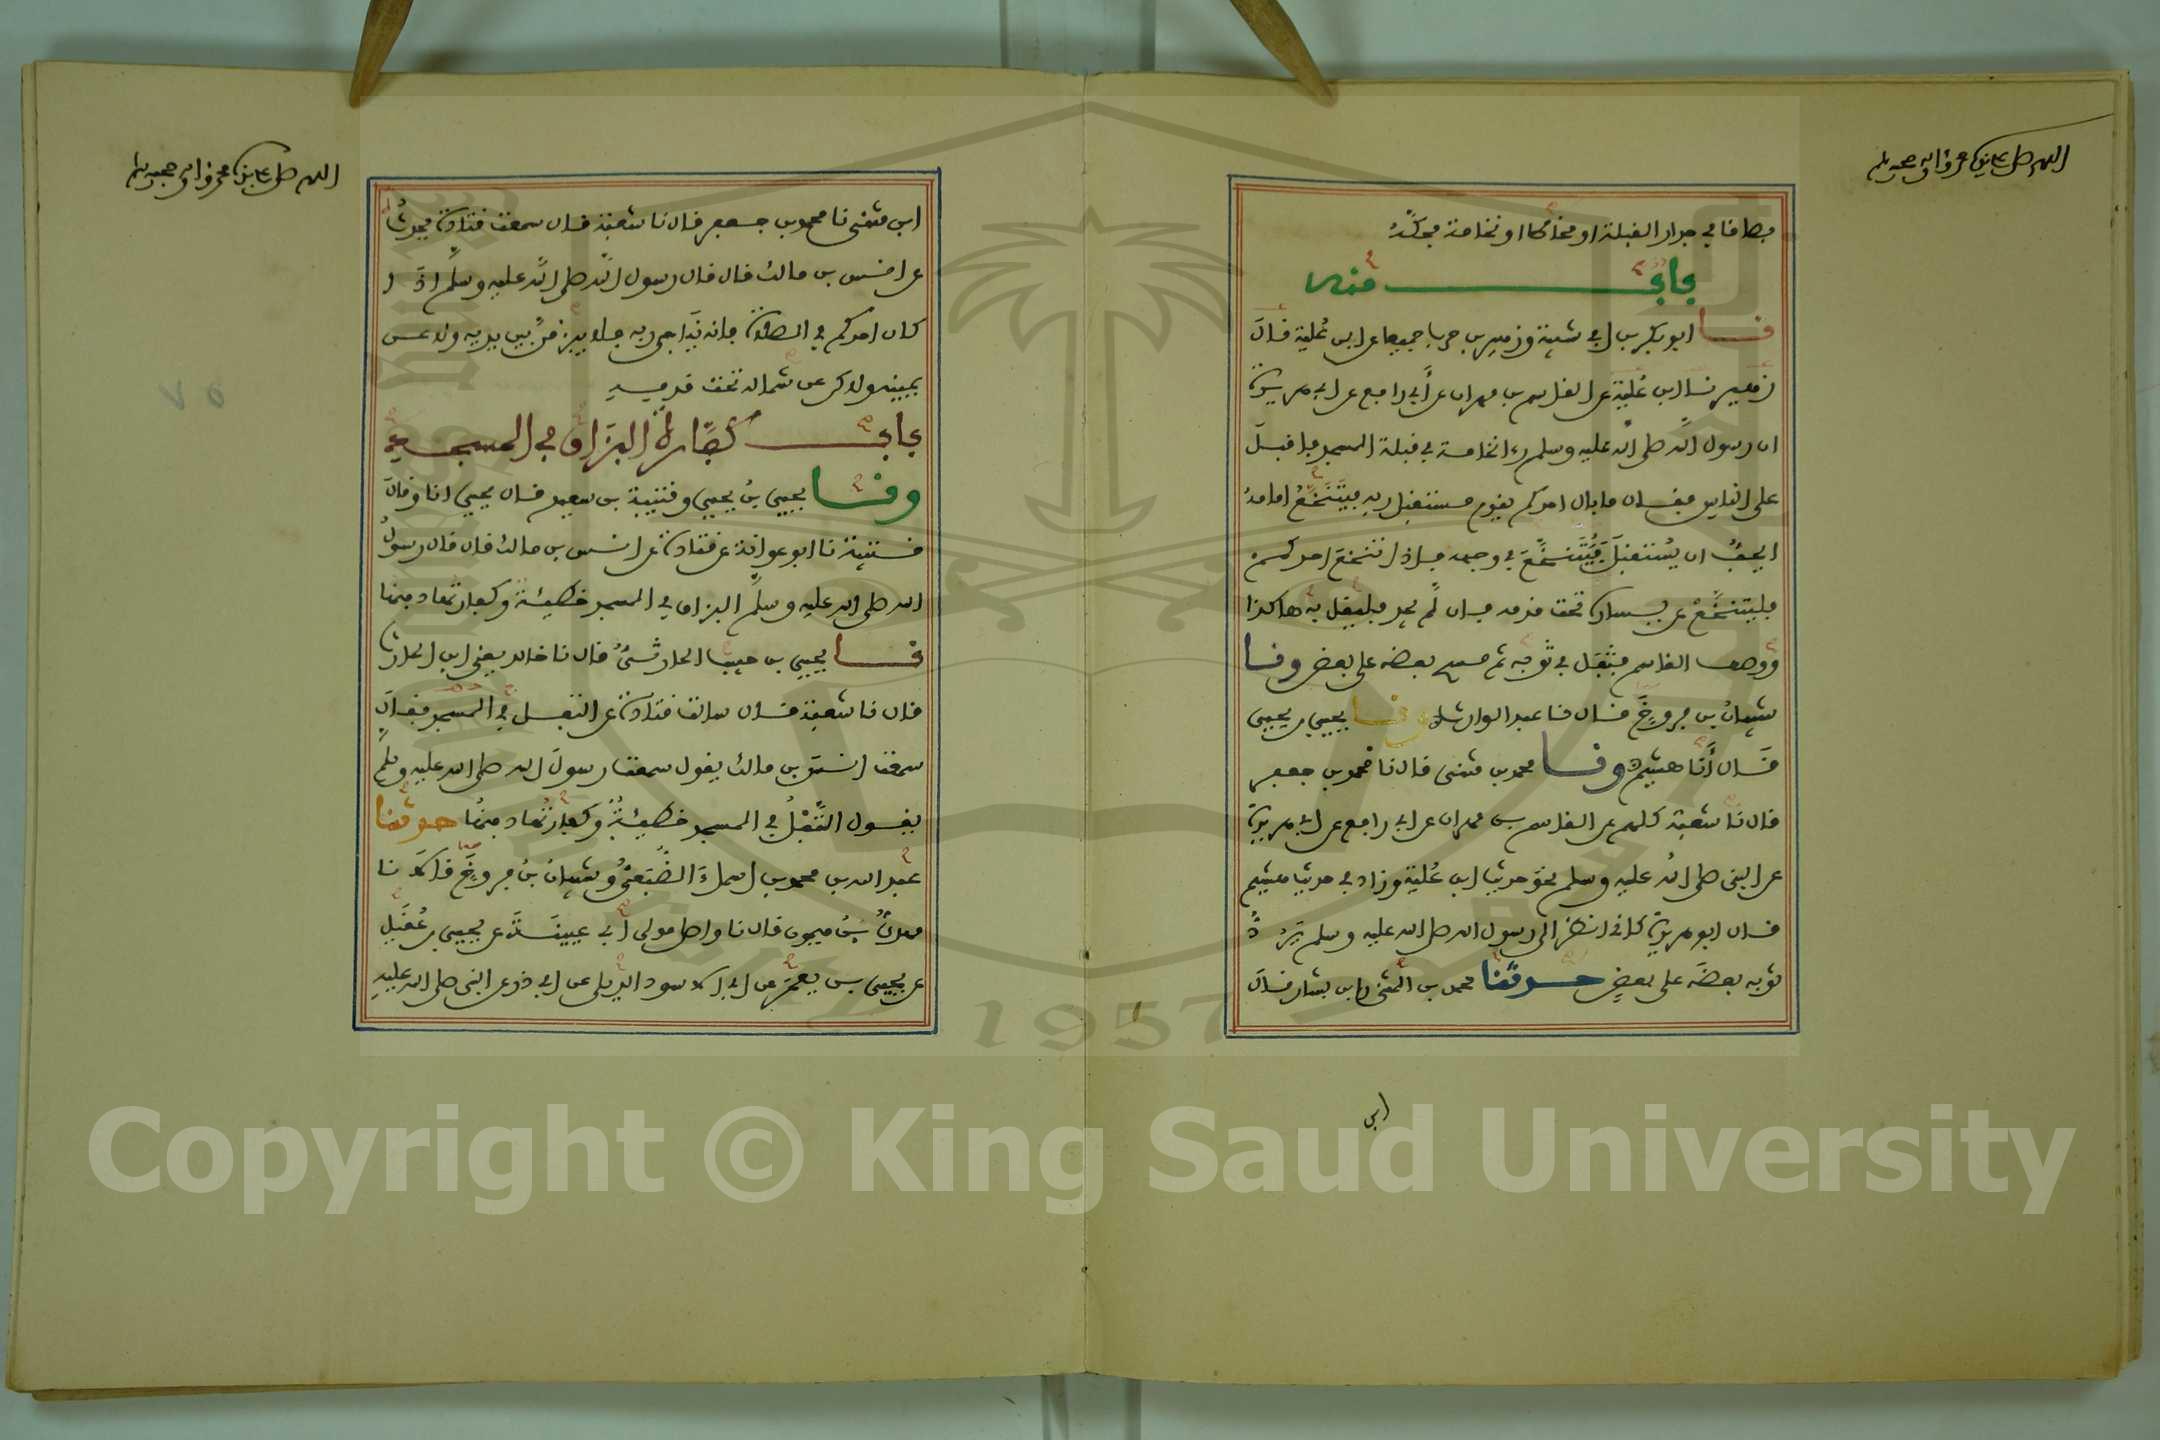 اللهم صل على نبينا محمد وآله وصحبه وسلم
بصاقا في جدار القبلة او مخاطا او نخامة فحكّه
باب منه
نا ابو بكر بن ابي شيبة وزهير بن حرب جميعا عن ابن عُلية قال
زهير نا ابن عُلية عن القاسم بن مهران عن أبي رافع عن ابي هريرة
ان رسول الله صلى الله عليه وسلم رءا نخامة في قبلة المسجد فاقبل
على الناس فقال ما بال احدكم يقوم مستقبل ربه فيتَنَخَّعُ امامهُ
ايحبّ ان يُستقبَلَ فَيُتَنخَّعَ في وجهه فاذا تنخعَ احدكم
فليتنخَّعْ عن يساره تحت قدمه فان لَم يجد فليقل به هاكذا
ووصف القاسم فتفل في ثوبه ثم مسح بعضه على بعض ونا
شيبانُ بن فروخَ قال نا عبد الوارث ونا يحيى بن يحيى
قال أَنَا هشيم ونا محمد بن مثنى قال نا محمد بن جعفر
قال نا شعبة كلهم عن القاسم بن مهران عن ابي رافع عن ابي هريرة
عن النبي صلى الله عليه وسلم نحوَ حديث ابن عُلية وزاد في حديث هشيم
قال ابو هريرة كاني انظر الى رسول الله صلى الله عليه وسلم يَرُدُّ
ثوبه بعضَه على بعضٍ حدثنا محمد بن المثنى وابن بشار قال
ابن
اللهم صل على نبينا محمد وآله وصحبه وسلم
ابن مثنى نا محمد بن جعفر قال نا شعبة قال سمعت قتادة يحدثُ
عن انس بن مالك قال قال رسول الله صلى الله عليه وسلم اذا
كان احدكم في الصلوة فانه يُناجي ربه فلا يبزقن بين يديه ولا عن
يمينه ولاكن عن شماله تحت قدمه
باب كفّارة البزاق في المسجد
ونا يحيى بن يحيى وقتيبة بن سعيد قال يحيى انا وقال
قتيبة نا ابو عوانة عن قتادة عن انس بن مالك قال قال رسولُ
الله صلى الله عليه وسلم البزاق في المسجد خطيئة وكفارتها دفنها
نا يحيى بن حبيب الحارثىُّ قال نا خالد يعني ابن الحارث
قال نا شعبة قال سالت قتادة عن التفل في المسجد فقال
سمعت انسَ بن مالك يقول سمعت رسولَ الله صلى الله عليه وسلم
يقول التَّفْلُ في المسجد خطيئةٌ وكفارتُها دفنُها حدثنا
عبد الله بن محمد بن اسماءَ الضُّبَعىُّ وشيبان بنُ فروخَ قالا نا
مهدىُّ بنُ ميمون قال نا واصل مولى أبي عيينَةَ عن يحيى بن عُقَيلٍ
عن يحيى بن يعمَرَ عن ابي الاسود الديلى عن ابي ذر عن النبى صلى الله عليه
٧٥
1957
Copyright © King Saud University